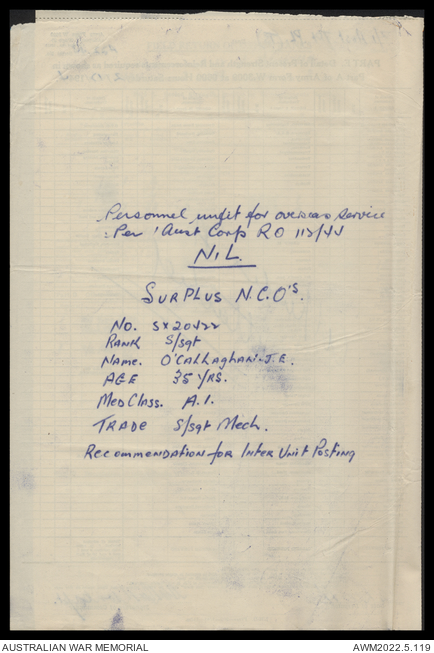 Personnel unfit for overseas service
Per 1 Aust Corp RO 113/44
NIL.
SURPLUS N.C.O'S.
No. SX20422
RANK S/sgt
NAME. O'CALLAGHAN. J.E.
AGE 35 YRS.
Med Class. A.1.
TRADE S/sgt Mech.
Recommendation for Inter Unit Posting
AUSTRALIAN WAR MEMORIAL
AWM2022.5.119